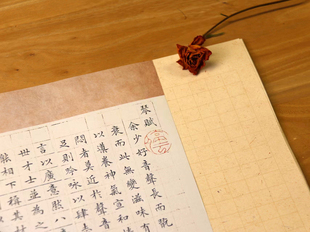 琴賦
余少好音聲長而翫
衰而此無變滋味有
以導養神氣宣和
悶者莫近於音聲
足則吟詠以肆
言以廣意然八
世才士並為之
相襲稱其